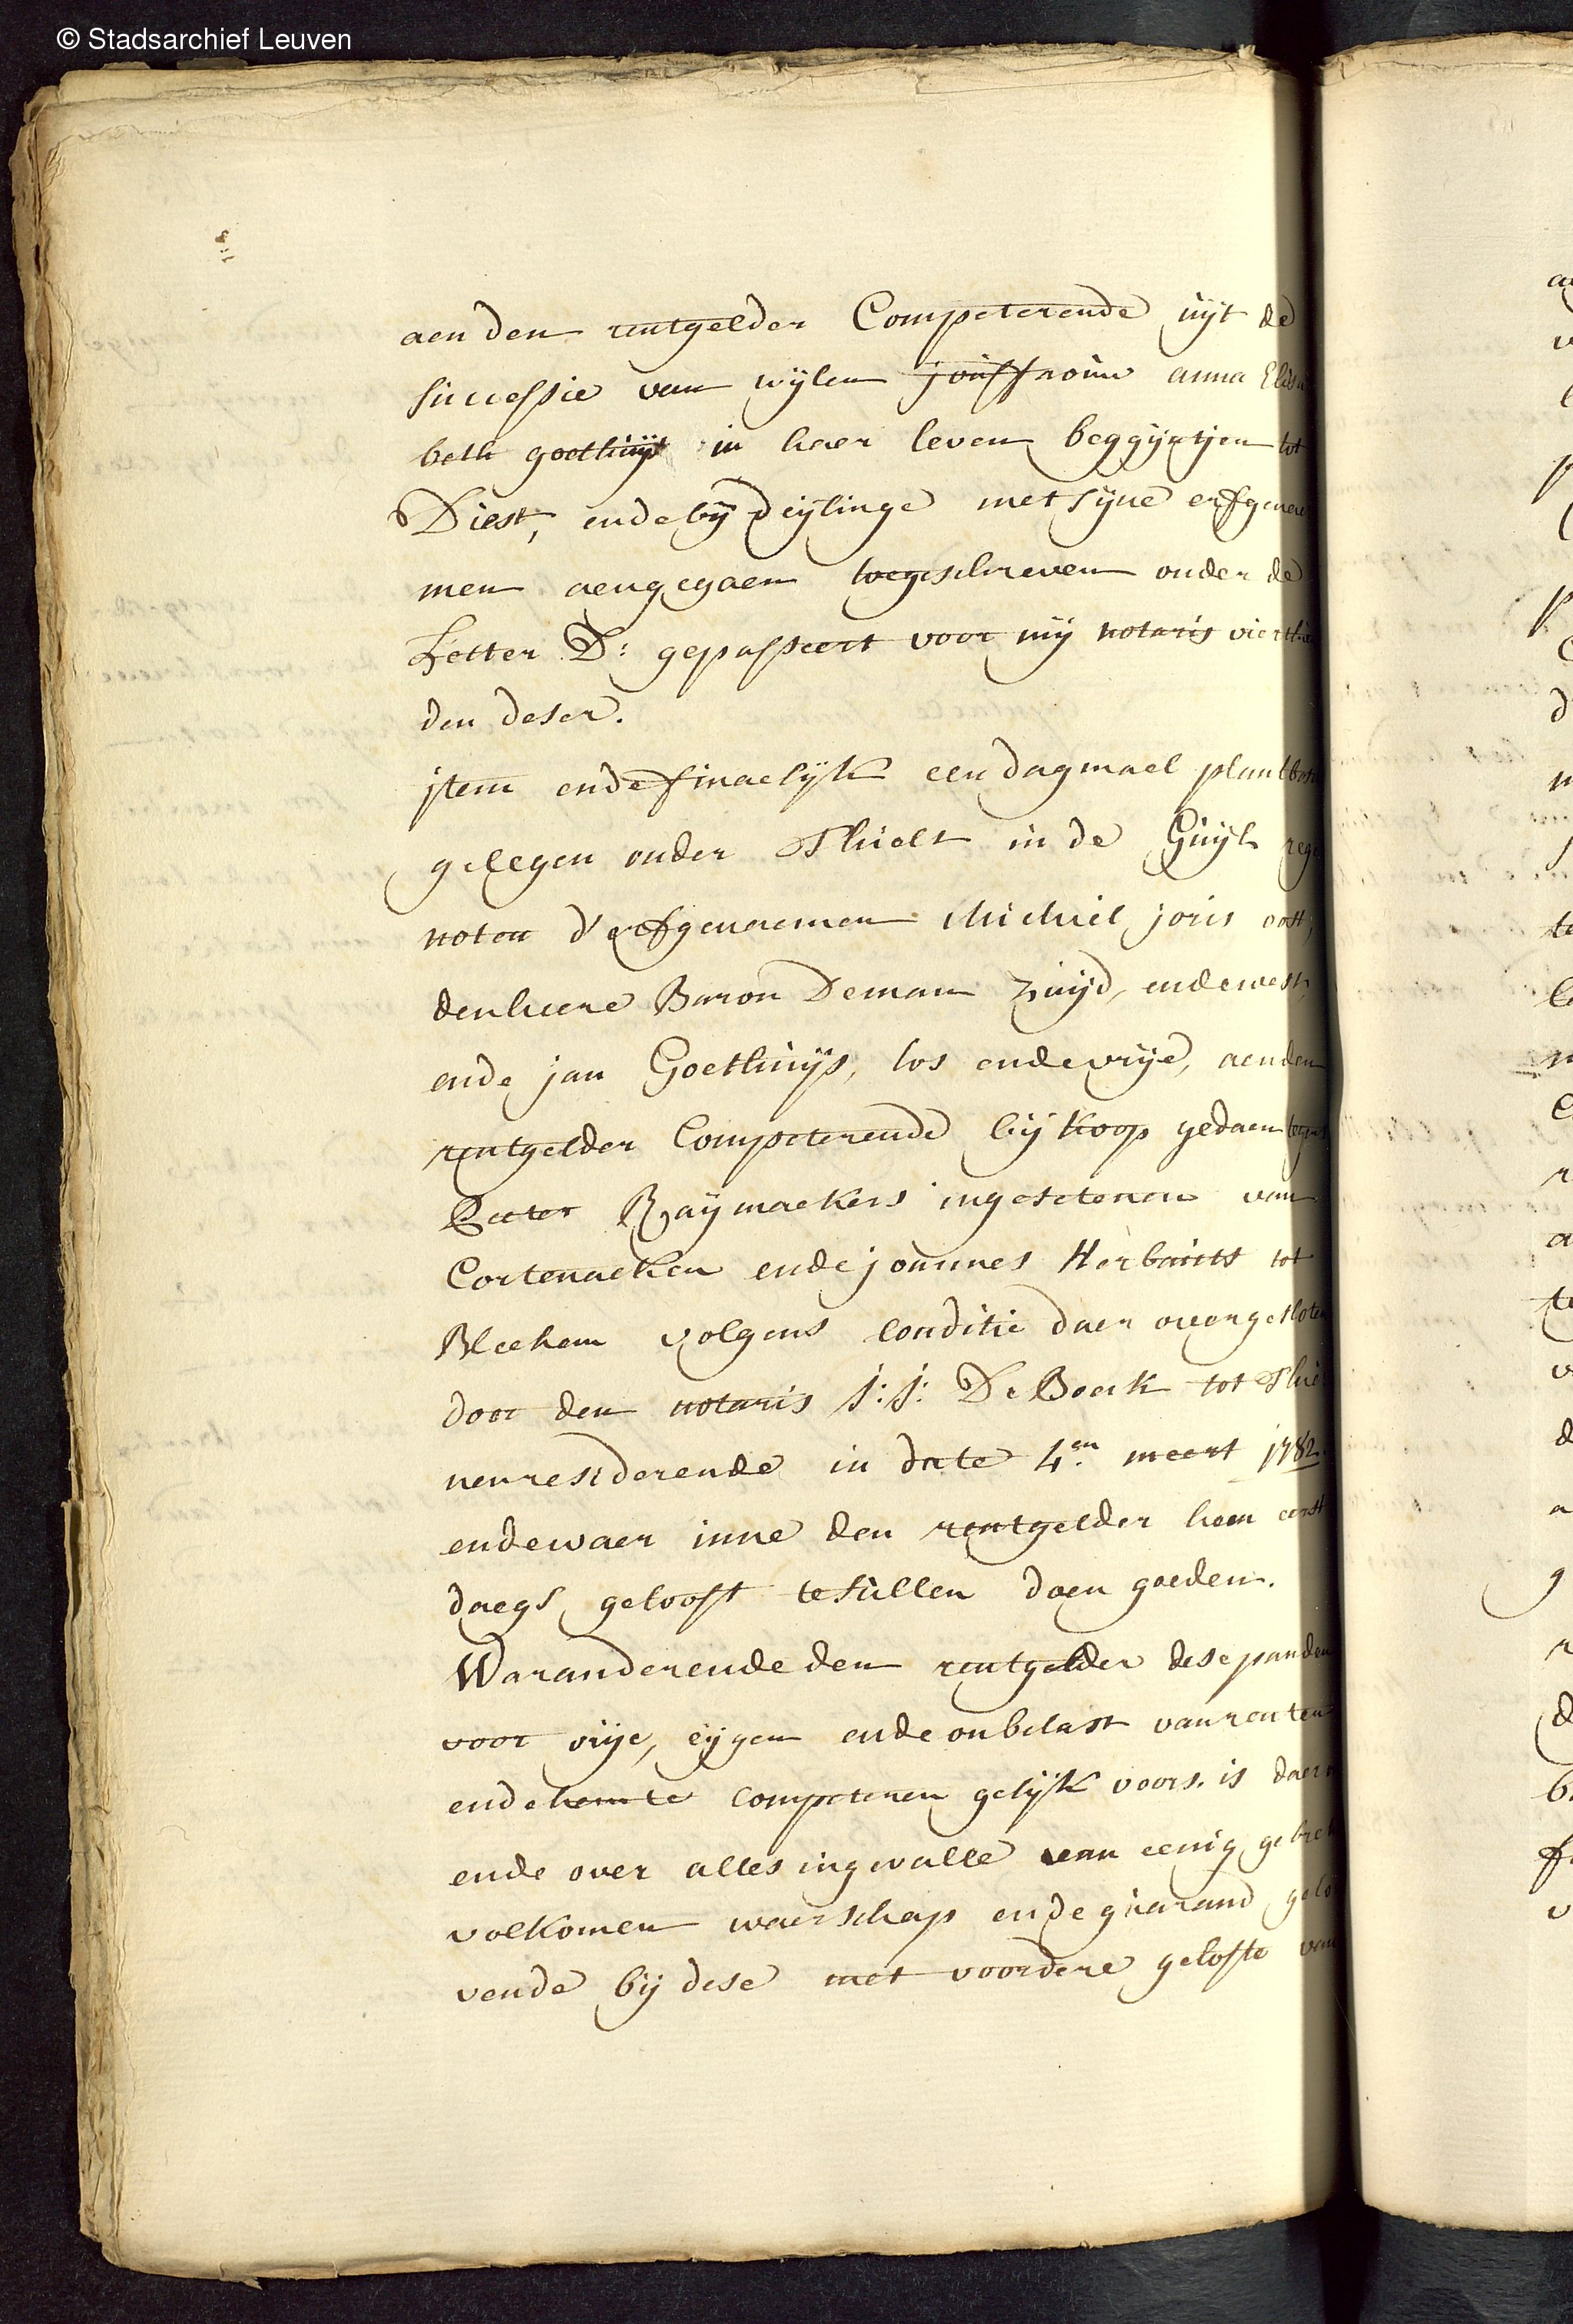 © Stadsarchief Leuven
aen den rentgelder Competerende uijt de
successie van wijlen jouffrouw anna Elisa
beth goethuijs in haer leven beggijntjen tot
Diest, ende bij deijlinge met sijne erfgenae
men aengegaen toegeschreven onder de
Letter D: gepasseert voor mij notaris vierthie
den deser.
jtem ende finaelijk een dagmael plantbosch
gelegen onder Thielt in de Guijt rege
noten d'erfgenaemen Michiel joris oost,
den heere Baron Deman Zuijd, ende west,
ende jan Goethuijs, los ende vrije, aen den
rentgelder Competerende bij koop gedaen tegens
Peeter Raijmaekers ingesetenen van
Cortenaeken ende joannes Herbaits tot
Bleehem volgens conditie daer over gesloten
door den notaris J: J: De Boeck tot Thie
nen residerende in date 4en meert 1782
ende waer inne den rentgelder hem eerst
daegs gelooft te sullen doen goeden.
Waranderende den rentgelder dese panden
voor vrije, eijgen ende onbelast van renten
ende hem te competeren gelijk voors. is daer
ende over alles ingevalle van eenig gebrek
volkomen waerschap ende guarand gelo
vende bij dese met voordere gelofte van